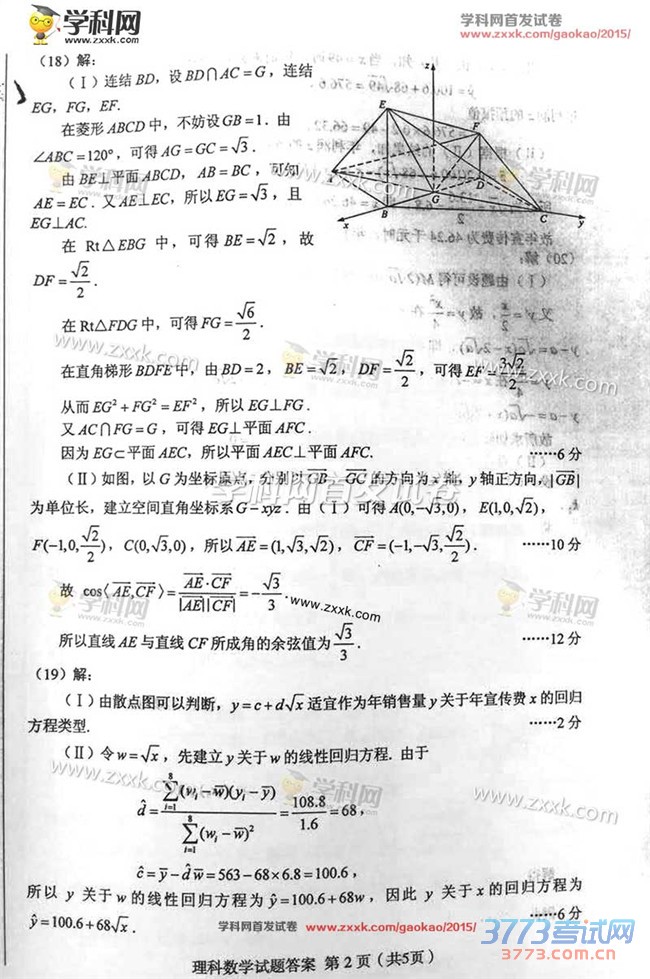 学科网
www.zxxk.com
学科网首发试卷
www.zxxk.com/gaokao/2015/
(18)解:
(Ⅰ)连结BD,设BD∩AC=G,连结
EG,FG,EF.
在菱形ABCD中,不妨设GB=1.由
∠ABC=120°,可得AG=GC=√3.
由BE⊥平面ABCD,AB=BC,可知
AE=EC.又AE⊥EC,所以EG=√3,且
EG⊥AC.
在Rt△EBG中,可得BE=√2,故
DF=√2/2.
在Rt△FDG中,可得FG=√6/2.
在直角梯形BDFE中,由BD=2,BE=√2,DF=√2/2,可得EF=3√2/2.
从而EG²+FG²=EF²,所以EG⊥FG.
又AC∩FG=G,可得EG⊥平面AFC.
因为EG⊂平面AEC,所以平面AEC⊥平面AFC. ……6分
(Ⅱ)如图,以G为坐标原点,分别以GB,GC的方向为x轴,y轴正方向,|GB|
为单位长,建立空间直角坐标系G-xyz.由(Ⅰ)可得A(0,-√3,0),E(1,0,√2),
F(-1,0,√2/2),C(0,√3,0),所以AE=(1,√3,√2),CF=(-1,-√3,√2/2). ……10分
故 cos⟨AE,CF⟩=AE·CF/|AE||CF|=-√3/3.
所以直线AE与直线CF所成角的余弦值为√3/3. ……12分
(19)解:
(Ⅰ)由散点图可以判断,y=c+d√x适宜作为年销售量y关于年宣传费x的回归
方程类型. ……2分
(Ⅱ)令w=√x,先建立y关于w的线性回归方程.由于
d̂=∑(i=1→8)(wᵢ-w̄)(yᵢ-ȳ)/∑(i=1→8)(wᵢ-w̄)²=108.8/1.6=68,
ĉ=ȳ-d̂w̄=563-68×6.8=100.6,
所以y关于w的线性回归方程为ŷ=100.6+68w,因此y关于x的回归方程为
ŷ=100.6+68√x. ……6分
学科网首发试卷 www.zxxk.com/gaokao/2015/
理科数学试题答案 第2页(共5页)
3773考试网
www.3773.com.cn
z
E
F
D
G
B
C
x
y